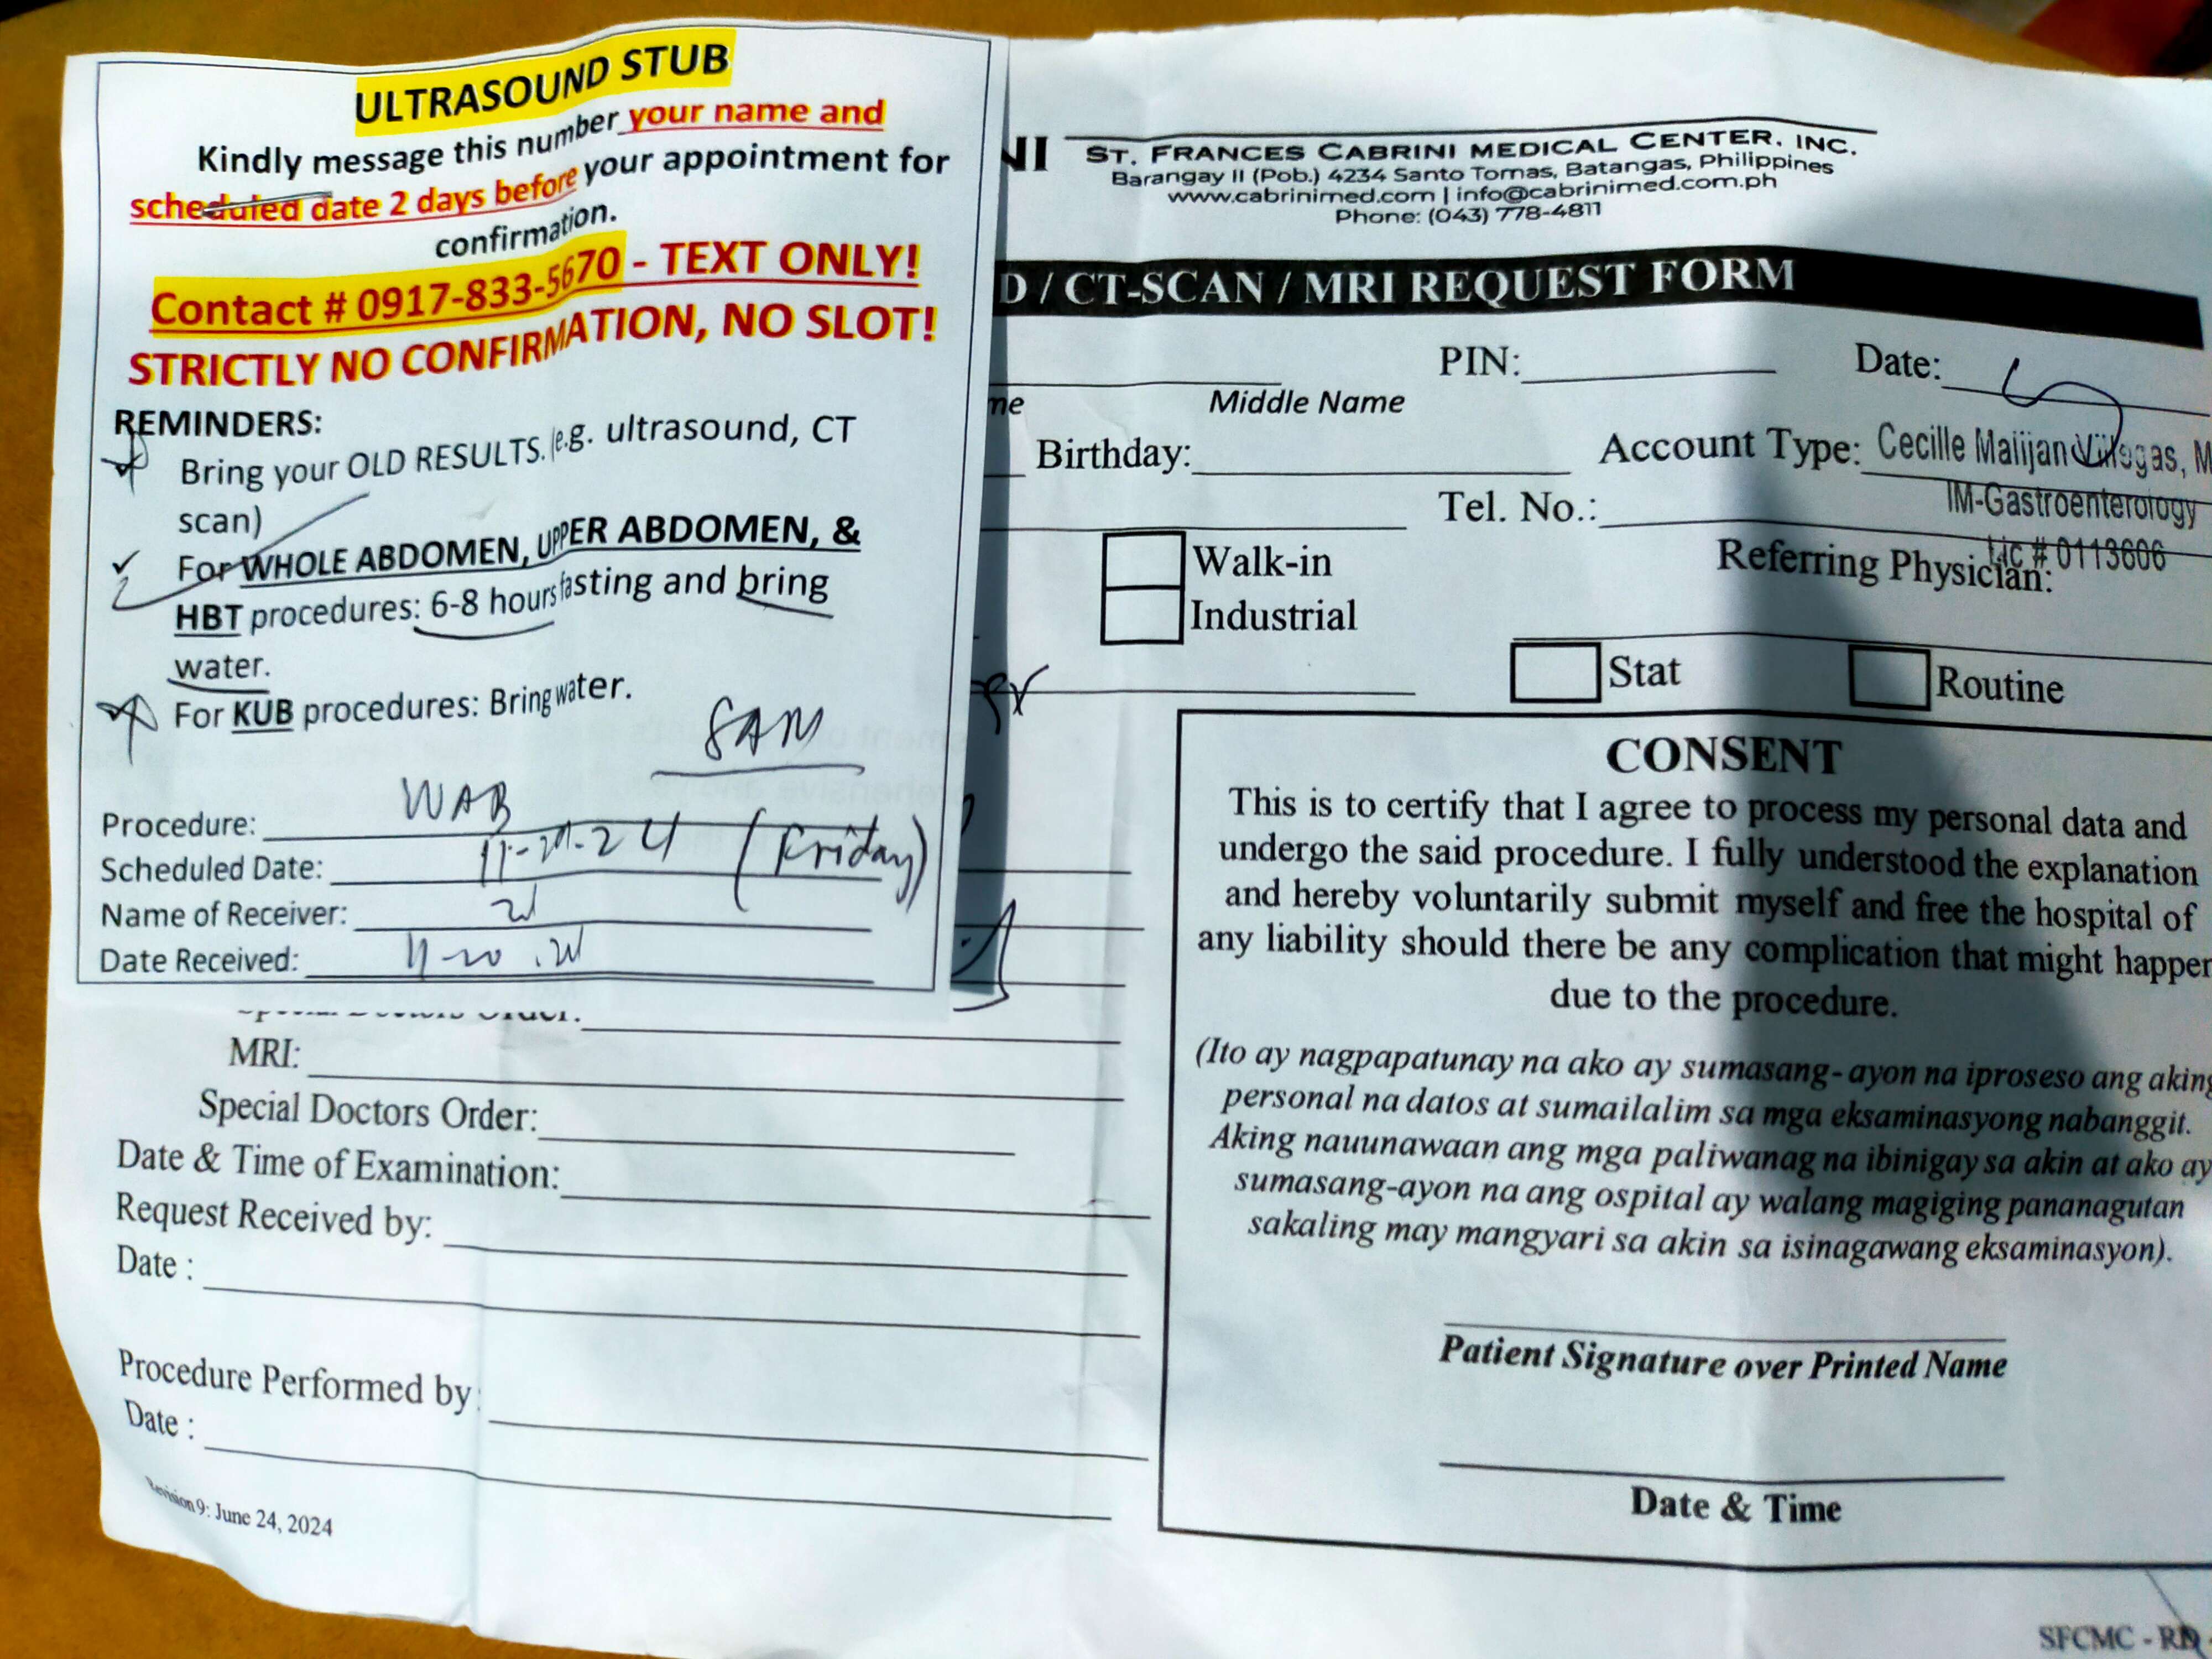 ULTRASOUND STUB
Kindly message this number your name and
scheduled date 2 days before your appointment for
confirmation.
Contact # 0917-833-5670 - TEXT ONLY!
STRICTLY NO CONFIRMATION, NO SLOT!
REMINDERS:
Bring your OLD RESULTS. (e.g. ultrasound, CT
scan)
For WHOLE ABDOMEN, UPPER ABDOMEN, &
HBT procedures: 6-8 hours fasting and bring
water.
For KUB procedures: Bring water.
8AM
Procedure: WAB
Scheduled Date: (Friday)
Name of Receiver:
Date Received:
NI
ST. FRANCES CABRINI MEDICAL CENTER, INC.
Barangay II (Pob.) 4234 Santo Tomas, Batangas, Philippines
www.cabrinimed.com | info@cabrinimed.com.ph
Phone: (043) 778-4811
D / CT-SCAN / MRI REQUEST FORM
PIN: Date:
me Middle Name
Birthday: Account Type: Cecille Malijan Villegas, M
Tel. No.: IM-Gastroenterology
Walk-in Referring Physician: Lic # 0113606
Industrial
Stat Routine
CONSENT
This is to certify that I agree to process my personal data and
undergo the said procedure. I fully understood the explanation
and hereby voluntarily submit myself and free the hospital of
any liability should there be any complication that might happen
due to the procedure.
(Ito ay nagpapatunay na ako ay sumasang-ayon na iproseso ang aking
personal na datos at sumailalim sa mga eksaminasyong nabanggit.
Aking nauunawaan ang mga paliwanag na ibinigay sa akin at ako ay
sumasang-ayon na ang ospital ay walang magiging pananagutan
sakaling may mangyari sa akin sa isinagawang eksaminasyon).
Patient Signature over Printed Name
Date & Time
Special Doctors Order:
MRI:
Special Doctors Order:
Date & Time of Examination:
Request Received by:
Date :
Procedure Performed by:
Date :
Revision 9: June 24, 2024
SFCMC - RD